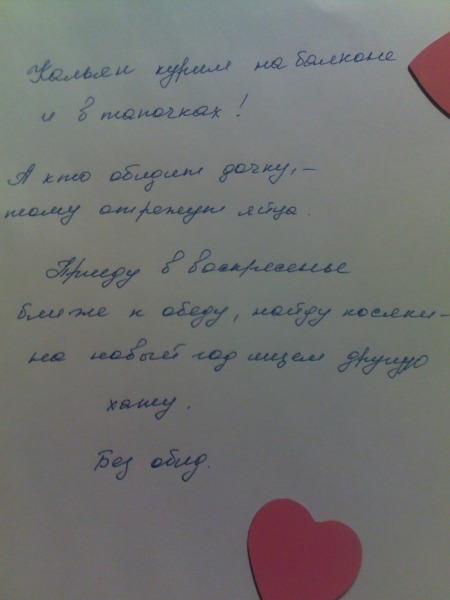 Кальян курим на балконе
и в тапочках!
А кто обидит дочку, –
тому отрежут яйца.
Приеду в воскресенье
ближе к обеду, найду косяки –
на новый год ищем другую
хату.
Без обид.